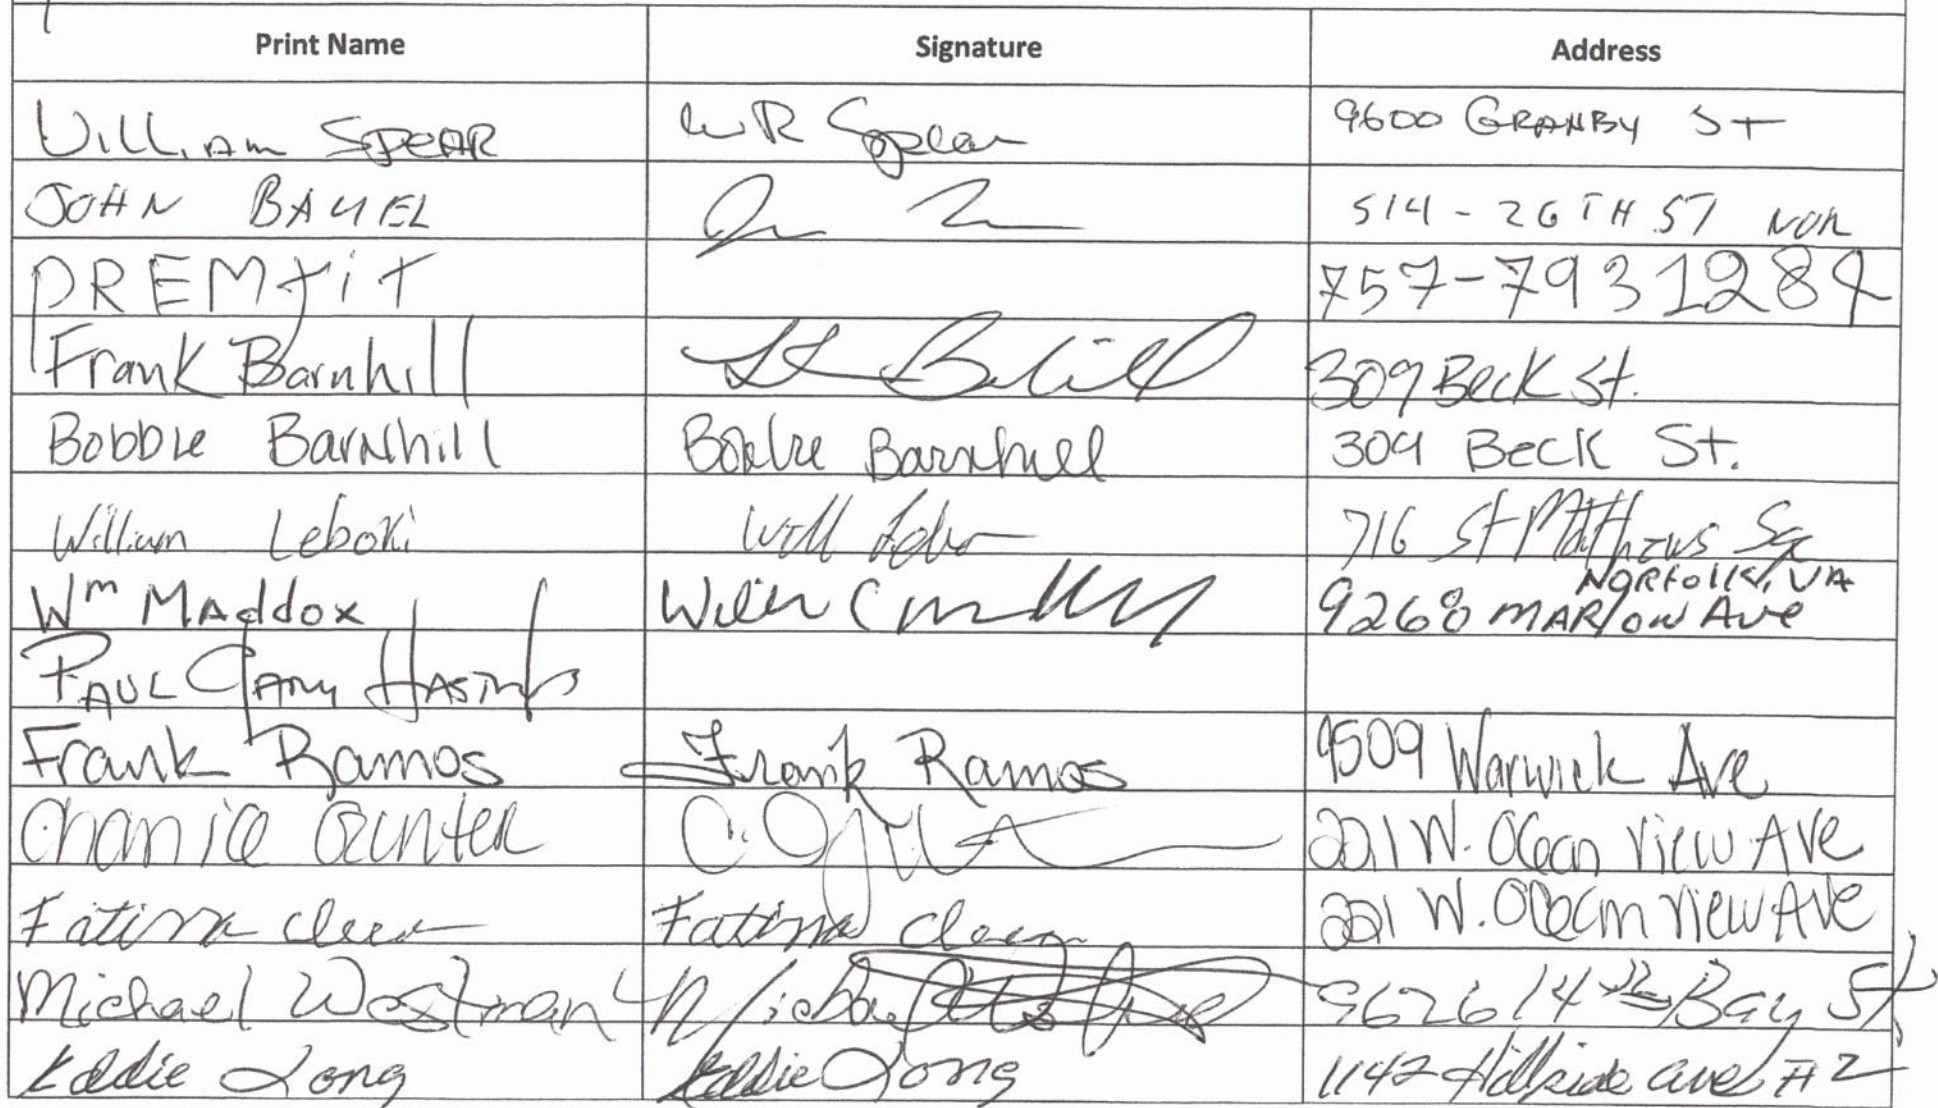 Print Name Signature Address
William SPEAR WR Spear 9600 GRANBY ST
JOHN BAYEL 514 - 26TH ST NOR
PREMJIT 757-7931284
Frank Barnhill 309 Beck St.
Bobbie Barnhill Bobbie Barnhill 309 Beck St.
William Leboki Will 716 St Matthews Sq
NORFOLK, VA
Wm MAddox 9268 MARlow Ave
PAUL GARY HASTINGS
Frank Ramos Frank Ramos 9509 Warwick Ave
Chanice Gunter 221 W. Ocean View Ave
Fatima Fatima 221 W. Ocean View Ave
Michael Westman Michael 9626 14th Bay St
Eddie Long Eddie Long 1142 Hillside ave #2